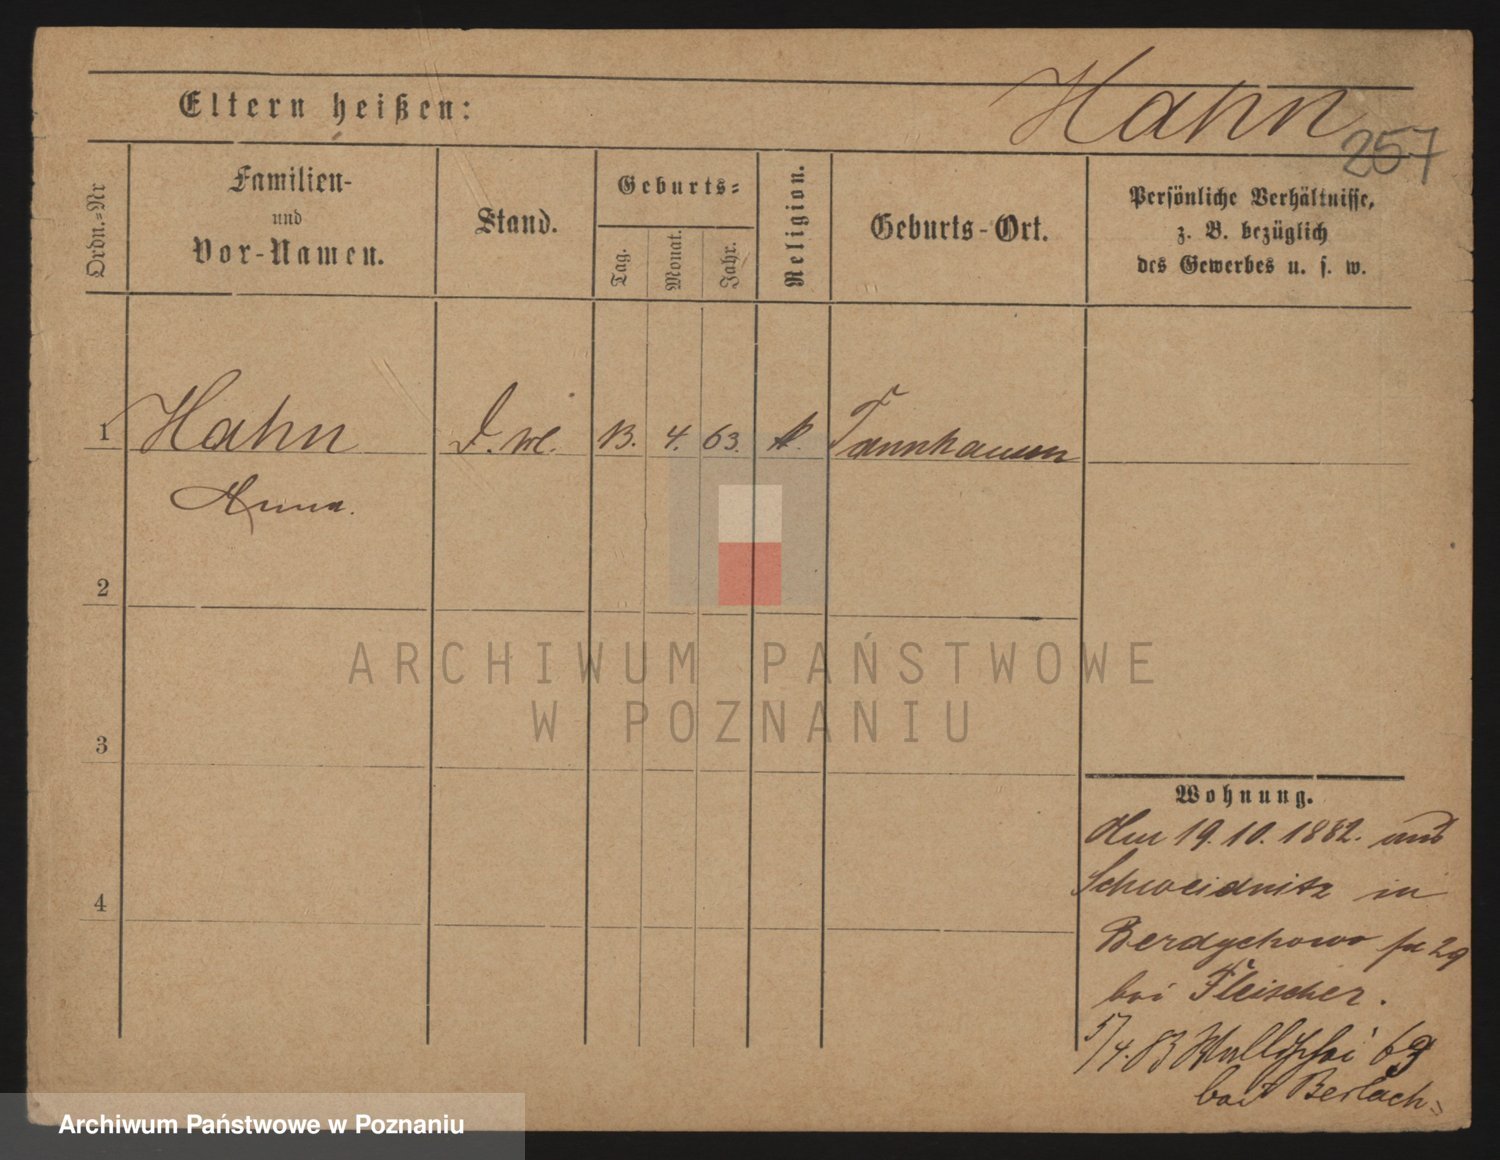 Eltern heißen:
Hahn
257
Ordn.=Nr
Familien-
und
Vor-Namen.
Stand.
Geburts=
Tag.
Monat.
Jahr.
Religion.
Geburts-Ort.
Persönliche Verhältnisse,
z. B. bezüglich
des Gewerbes u. s. w.
1 Hahn 13. 4. 63. k. Tannhausen
Anna.
2
3
4
ARCHIWUM PAŃSTWOWE
W POZNANIU
Wohnung.
Am 19.10.1882. aus
Schweidnitz in
Berdychowo 29
bei Fleischer.
5/4.83 63
bei Berlach
Archiwum Państwowe w Poznaniu